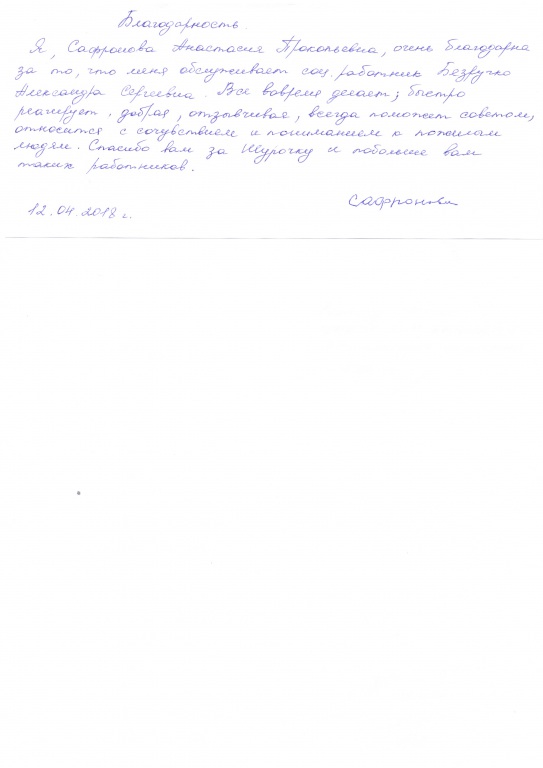 Благодарность.
Я, Сафронова Анастасия Прокопьевна, очень благодарна
за то, что меня обслуживает соц. работник Безручко
Александра Сергеевна. Все вовремя делает; быстро
реагирует, добрая, отзывчивая, всегда поможет советом,
относится с сочувствием и пониманием к пожилым
людям. Спасибо вам за Шурочку и побольше вам
таких работников.
12.04.2018 г. Сафронова